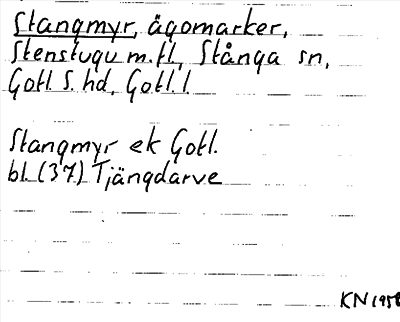 Stangmyr, ägomarker,
Stenstugu m.fl., Stånga sn,
Gotl. S. hd, Gotl. l.
Stangmyr ek Gotl.
bl. (37) Tjängdarve
KN 1958